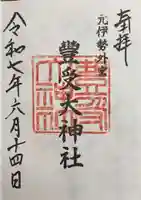 奉拝
元伊勢外宮
豊受大神社
令和七年六月十四日